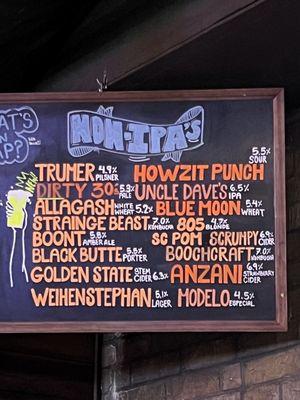 WHAT'S
ON
TAP?
NON-IPA'S
TRUMER 4.9% PILSNER
HOWZIT PUNCH 5.5% SOUR
DIRTY 30'S 5.3% PALE
UNCLE DAVE'S 6.5% IPA
ALLAGASH WHITE 5.2% WHEAT
BLUE MOON 5.4% WHEAT
STRAINGE BEAST 7.0% KOMBUCHA
805 4.7% BLONDE
BOONT 5.8% AMBER ALE
SC POM SCRUMPY 6.9% CIDER
BLACK BUTTE 5.5% PORTER
BOOCHCRAFT 7.0% KOMBUCHA
GOLDEN STATE BTEM CIDER 6.3%
ANZANI 6.9% STRAWBERRY CIDER
WEIHENSTEPHAN 5.1% LAGER
MODELO 4.5% ESPECIAL